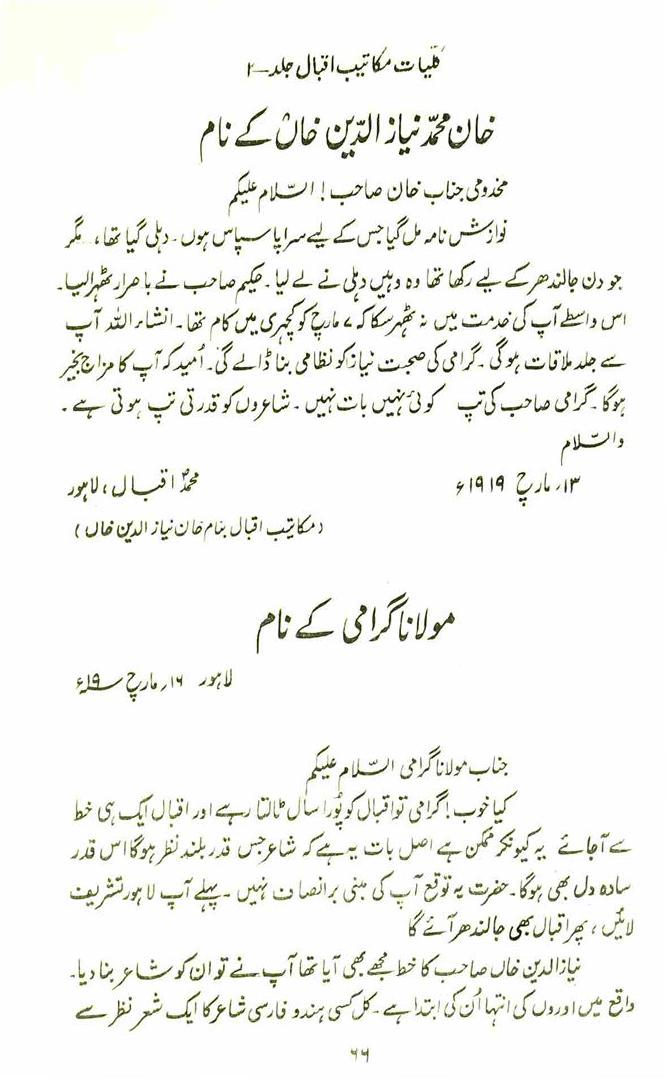 کلّیات مکاتیب اقبال جلد ۔ ۲
خان محمّد نیاز الدّین خاں کے نام
مخدومی جناب خان صاحب! السّلام علیکم
نوازش نامہ مل گیا جس کے لیے سراپا سپاس ہوں۔ دہلی گیا تھا، مگر
جو دن جالندھر کے لیے رکھا تھا وہ وہیں دہلی نے لے لیا۔ حکیم صاحب نے باصرار ٹھہرا لیا۔
اس واسطے آپ کی خدمت میں نہ ٹھہر سکا کہ ۷ مارچ کو کچہری میں کام تھا۔ انشاء اللہ آپ
سے جلد ملاقات ہوگی۔ گرامی کی صحبت نیاز کو نظامی بنا ڈالے گی۔ اُمید کہ آپ کا مزاج بخیر
ہوگا۔ گرامی صاحب کی تپ کوئی نہیں بات نہیں۔ شاعروں کو قدرتی تپ ہوتی ہے۔
والسّلام
۱۳؍ مارچ ۱۹۱۹ء محمدؐ اقبال، لاہور
(مکاتیب اقبال بنام خان نیاز الدین خاں)
مولانا گرامی کے نام
لاہور ۱۶؍ مارچ ۱۹ء
جناب مولانا گرامی السّلام علیکم
کیا خوب! گرامی تو اقبال کو پُورا سال ٹالتا رہے اور اقبال ایک ہی خط
سے آجائے یہ کیونکر ممکن ہے اصل بات یہ ہے کہ شاعر جس قدر بلند نظر ہوگا اس قدر
سادہ دل بھی ہوگا۔ حضرت یہ توقع آپ کی مبنی بر انصاف نہیں۔ پہلے آپ لاہور تشریف
لائیں، پھر اقبال بھی جالندھر آئے گا
نیاز الدین خاں صاحب کا خط مجھے بھی آیا تھا آپ نے تو ان کو شاعر بنا دیا۔
واقع میں اوروں کی انتہا اُن کی ابتدا ہے۔ کل کسی ہندو فارسی شاعر کا ایک شعر نظر سے
۶۶